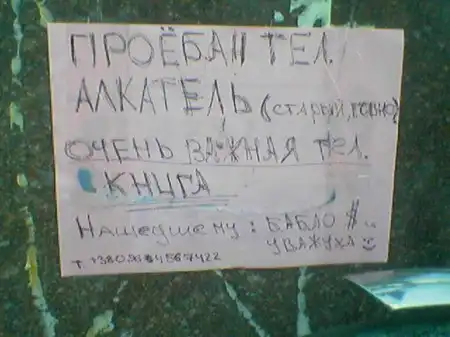 ПРОЁБАЛ ТЕЛ.
АЛКАТЕЛЬ (СТАРЫЙ, ГОВНО)
ОЧЕНЬ ВАЖНАЯ ТЕЛ.
КНИГА
Нашедшему: БАБЛО $
УВАЖУХА